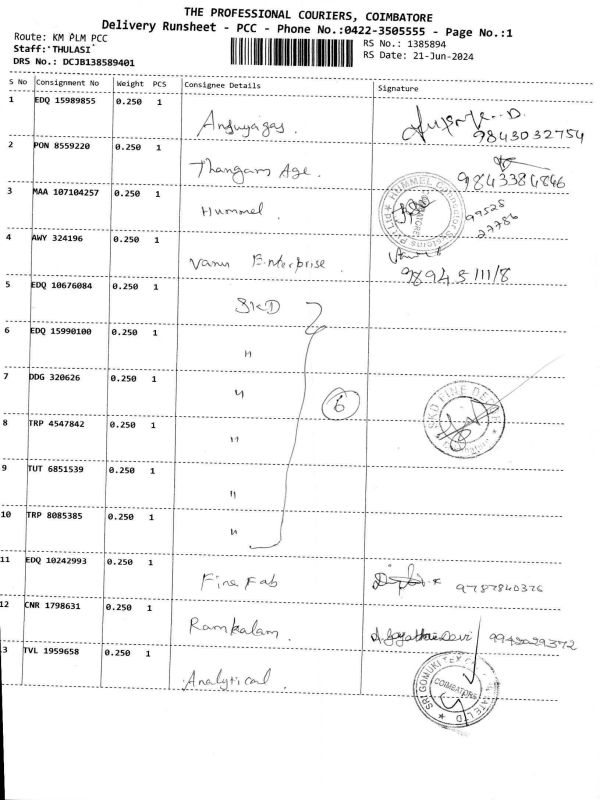 THE PROFESSIONAL COURIERS, COIMBATORE
Delivery Runsheet - PCC - Phone No.:0422-3505555 - Page No.:1
Route: KM PLM PCC
RS No.: 1385894
Staff: THULASI
RS Date: 21-Jun-2024
DRS No.: DCJB138589401
S No Consignment No Weight PCS Consignee Details Signature
1 EDQ 15989855 0.250 1
9843032754
2 PON 8559220 0.250 1 Thangam Age.
9843384846
3 MAA 107104257 0.250 1 Hummel.
HUMMEL Computer Systems PVT
COIMBATORE
99528
27786
4 AWY 324196 0.250 1 Vanu Enterprise.
9894511118
5 EDQ 10676084 0.250 1 SKD
6 EDQ 15990100 0.250 1 "
7 DDG 320626 0.250 1 "
6
SKD FINE DECOR
8 TRP 4547842 0.250 1 "
9 TUT 6851539 0.250 1 "
10 TRP 8085385 0.250 1 "
11 EDQ 10242993 0.250 1 Fine Fab
9787840376
12 CNR 1798631 0.250 1 Ramkalam.
3 TVL 1959658 0.250 1 Analytical.
SRI GOMUKI TEX
COIMBATORE